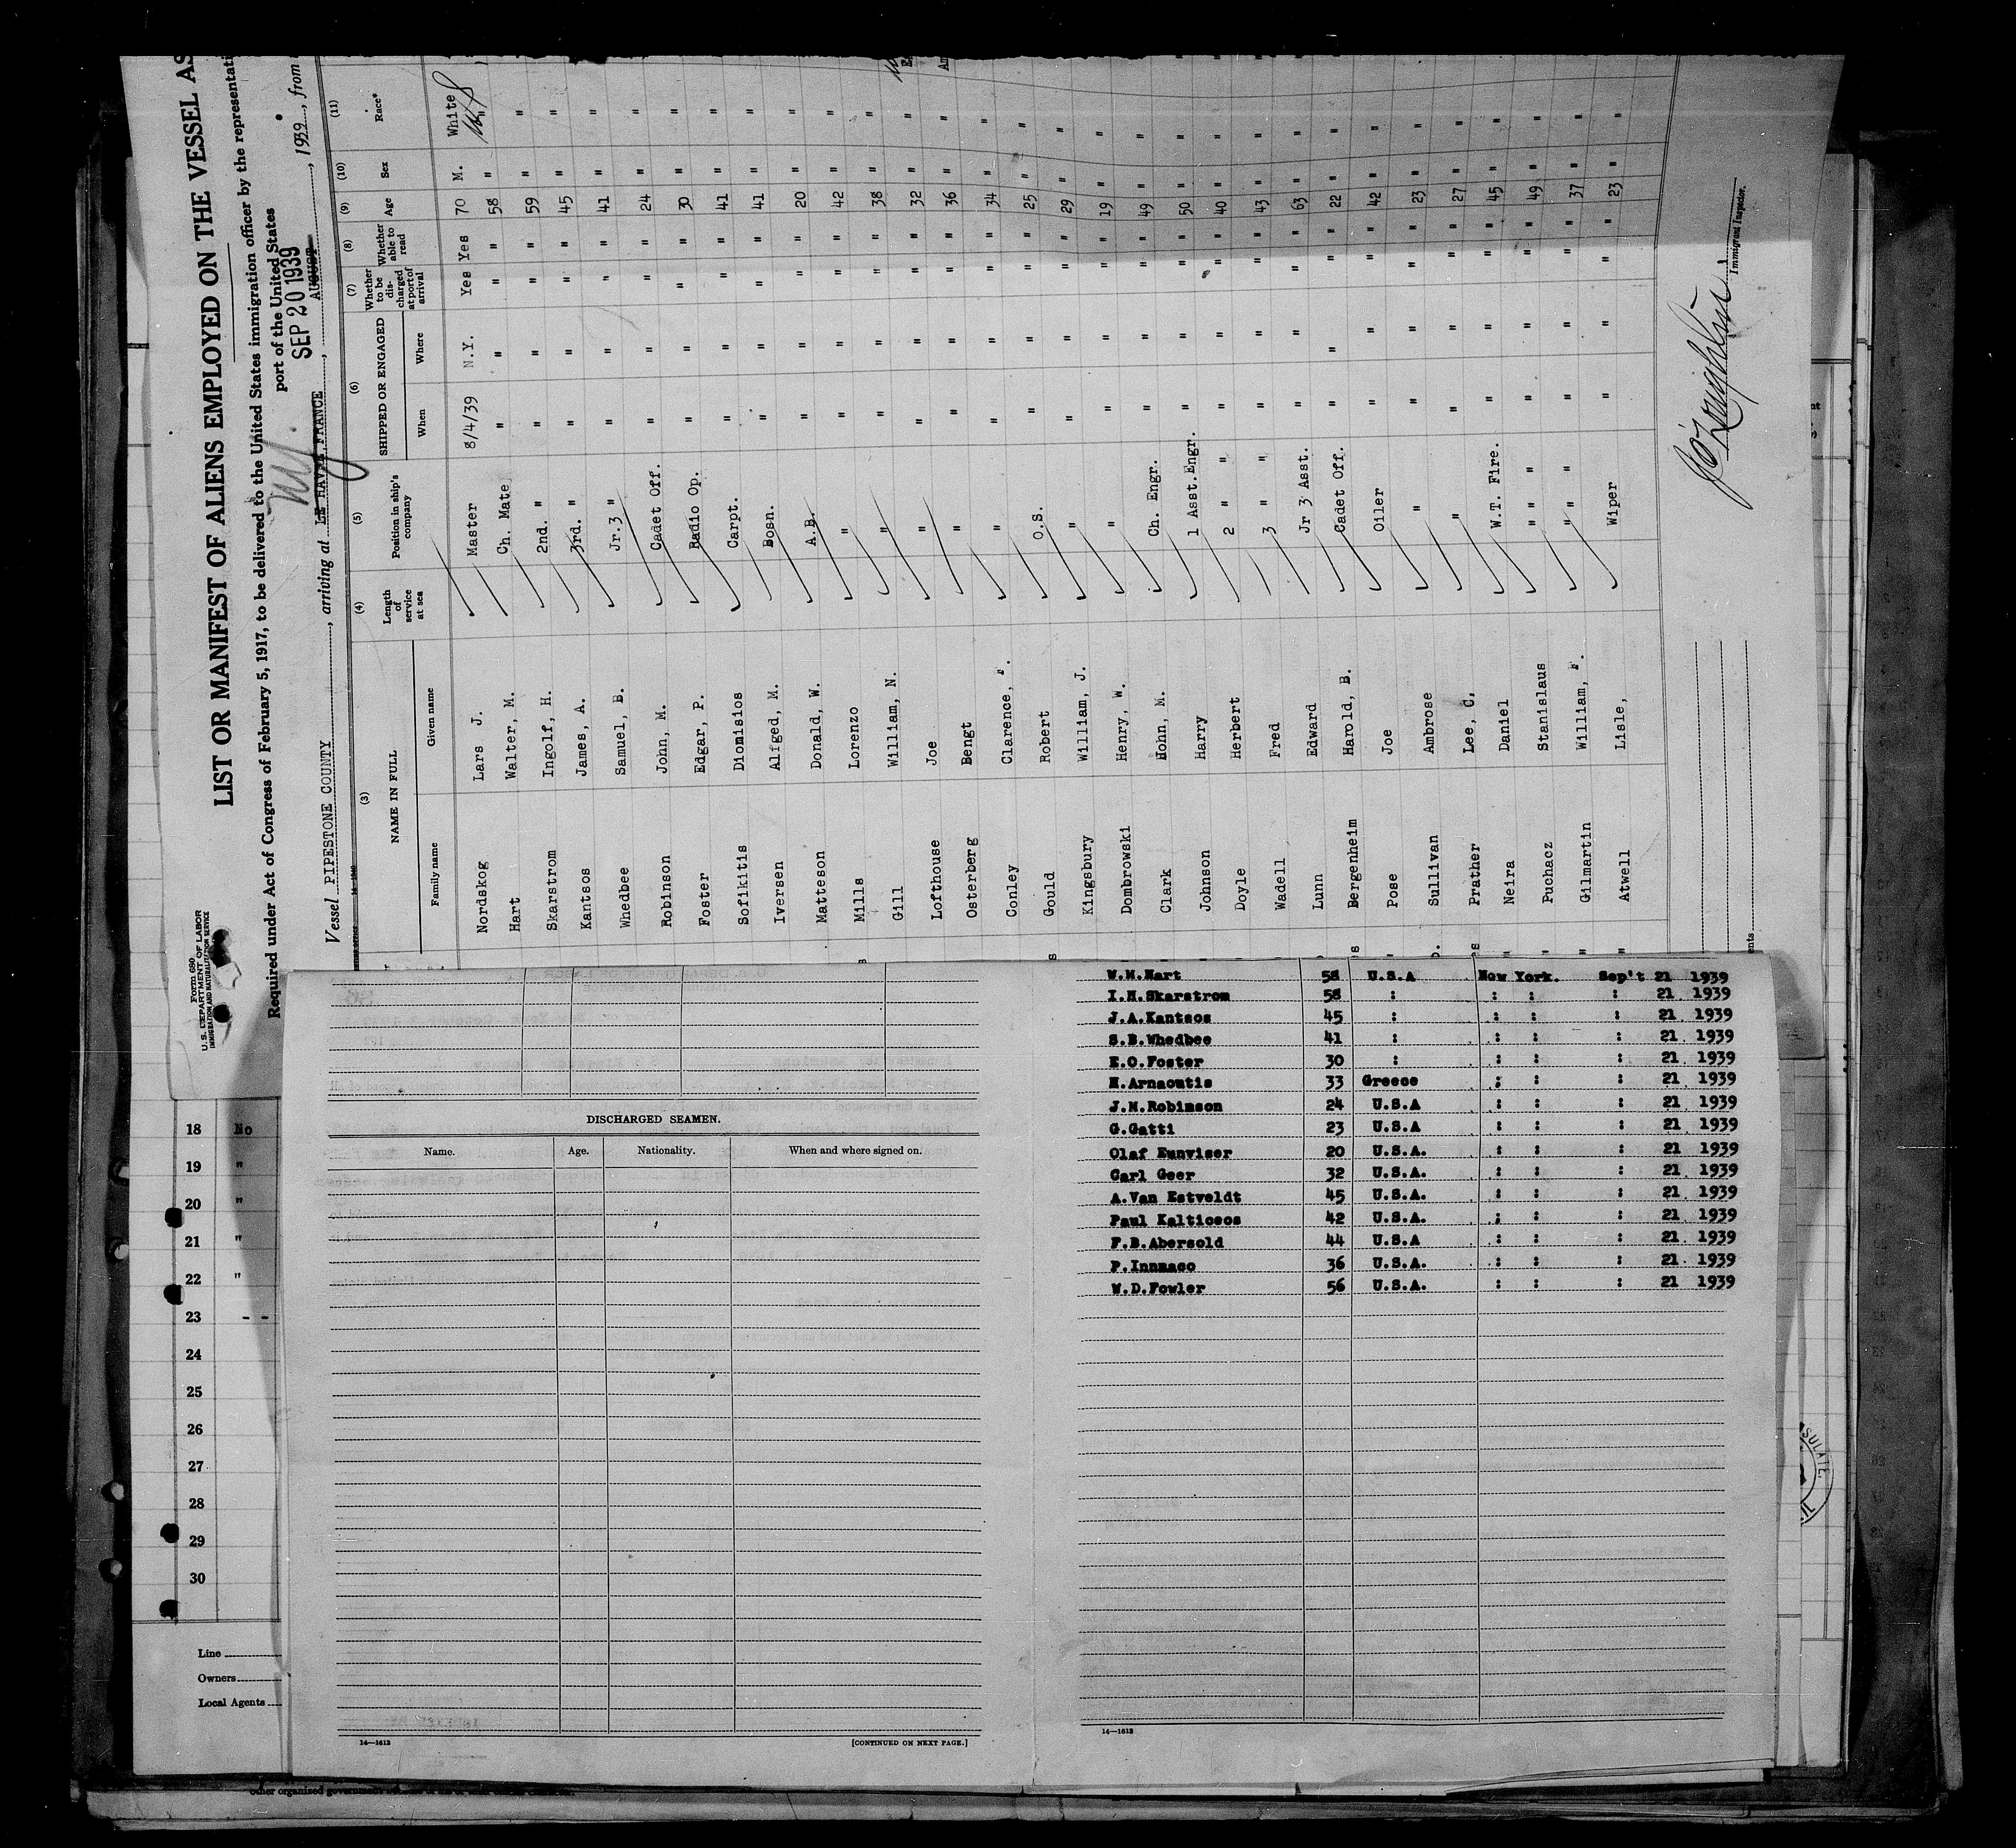 Form 680
U.S. DEPARTMENT OF LABOR
IMMIGRATION AND NATURALIZATION SERVICE
LIST OR MANIFEST OF ALIENS EMPLOYED ON THE VESSEL AS
Required under Act of Congress of February 5, 1917, to be delivered to the United States immigration officer by the representati
port of the United States
SEP 20 1939
Vessel PIPESTONE COUNTY, arriving at LE HAVRE, FRANCE, AUGUST, 1939, from
(3) (4) (5) (6) (7) (8) (9) (10) (11)
NAME IN FULL Length of service at sea Position in ship's company SHIPPED OR ENGAGED Whether to be discharged at port of arrival Whether able to read Age Sex Race*
Family name Given name When Where
Nordskog Lars J. Master 8/4/39 N.Y. Yes Yes 70 M. White
Hart Walter, M. Ch. Mate " " " " 58 " "
Skarstrom Ingolf, H. 2nd. " " " " " 59 " "
Kantsos James, A. 3rd. " " " " " 45 " "
Whedbee Samuel, B. Jr.3 " " " " " 41 " "
Robinson John, M. Cadet Off. " " " " 24 " "
Foster Edgar, P. Radio Op. " " " " 30 " "
Sofikitis Dionisios Carpt. " " " " 41 " "
Iversen Alfged, M. Bosn. " " " " 41 " "
Matteson Donald, W. A.B. " " " " 20 " "
Mills Lorenzo " " " " " 42 " "
Gill William, N. " " " " " 38 " "
Lofthouse Joe " " " " " 32 " "
Osterberg Bengt " " " " " 36 " "
Conley Clarence, F. " " " " " 34 " "
Gould Robert O.S. " " " " 25 " "
Kingsbury William, J. " " " " " 29 " "
Dombrowski Henry, W. " " " " " 19 " "
Clark Hohn, M. Ch. Engr. " " " " 49 " "
Johnson Harry 1 Asst.Engr. " " " " 50 " "
Doyle Herbert 2 " " " " " " 40 " "
Wadell Fred 3 " " " " " " 43 " "
Lunn Edward Jr 3 Asst. " " " " 63 " "
Bergenheim Harold, B. Cadet Off. " " " " 22 " "
Pose Joe Oiler " " " " 42 " "
Sullivan Ambrose " " " " " 23 " "
Prather Lee, C, " " " " " 27 " "
Neira Daniel W.T. Fire. " " " " 45 " "
Puchacz Stanislaus " " " " " " 49 " "
Gilmartin William, F. " " " " " " 37 " "
Atwell Lisle, Wiper " " " " 23 " "
Immigrant Inspector.
18 No
19 "
20 "
21 "
22 "
23 - -
24
25
26
27
28
29
30
Line
Owners
Local Agents
DISCHARGED SEAMEN.
Name. Age. Nationality. When and where signed on.
14—1613 [CONTINUED ON NEXT PAGE.]
W.M.Hart 58 U.S.A New York. Sep't 21 1939
I.H.Skarstrom 58 : : : : 21 1939
J.A.Kantsos 45 : : : : 21 1939
S.B.Whedbee 41 : : : : 21. 1939
E.O.Foster 30 : : : : 21 1939
H.Arnaoutis 33 Greece : : : 21 1939
J.M.Robinson 24 U.S.A : : : 21. 1939
G.Gatti 23 U.S.A : : : 21. 1939
Olaf Eunviser 20 U.S.A. : : : 21 1939
Carl Geer 32 U.S.A. : : : 21 1939
A.Van Estveldt 45 U.S.A. : : : 21. 1939
Paul Kalticsos 42 U.S.A. : : : 21. 1939
F.B.Abersold 44 U.S.A : : : 21. 1939
P.Innmaco 36 U.S.A. : : : 21. 1939
W.D.Fowler 56 U.S.A. : : : 21 1939
14—1613